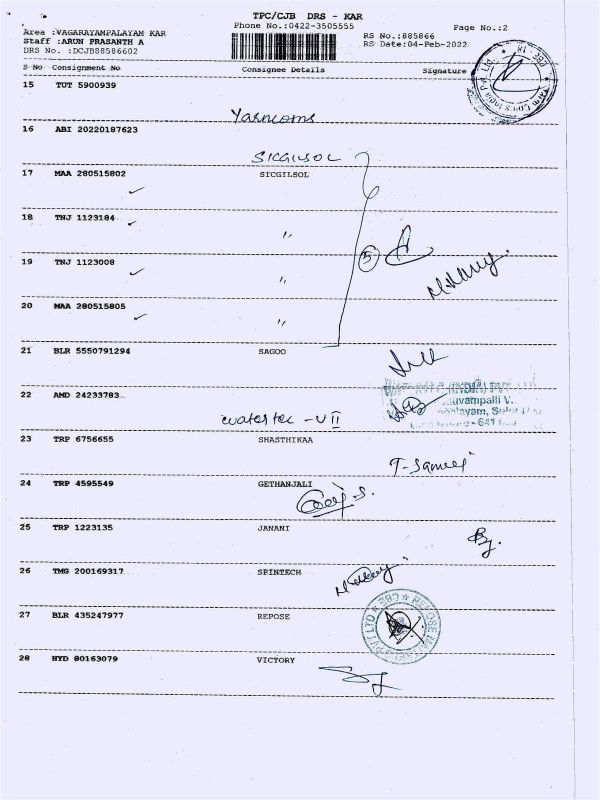 TPC/CJB DRS - KAR
Phone No.:0422-3505555
Page No.:2
Area :VAGARAYAMPALAYAM KAR
Staff :ARUN PRASANTH A
DRS No. :DCJB88586602
RS No.:885866
RS Date:04-Feb-2022
S No Consignment No Consignee Details Signature
15 TUT 5900939
Yarncoms
16 ABI 20220187623
SICGILSOL
17 MAA 280515802 SICGILSOL
18 TNJ 1123184
"
19 TNJ 1123008
5
"
20 MAA 280515805
"
21 BLR 5550791294 SAGOO
22 AMD 24233783
Watertec - VII
23 TRP 6756655 SHASTHIKAA
24 TRP 4595549 GETHANJALI
25 TRP 1223135 JANANI
26 TMG 200169317 SPINTECH
27 BLR 435247977 REPOSE
28 HYD 80163079 VICTORY